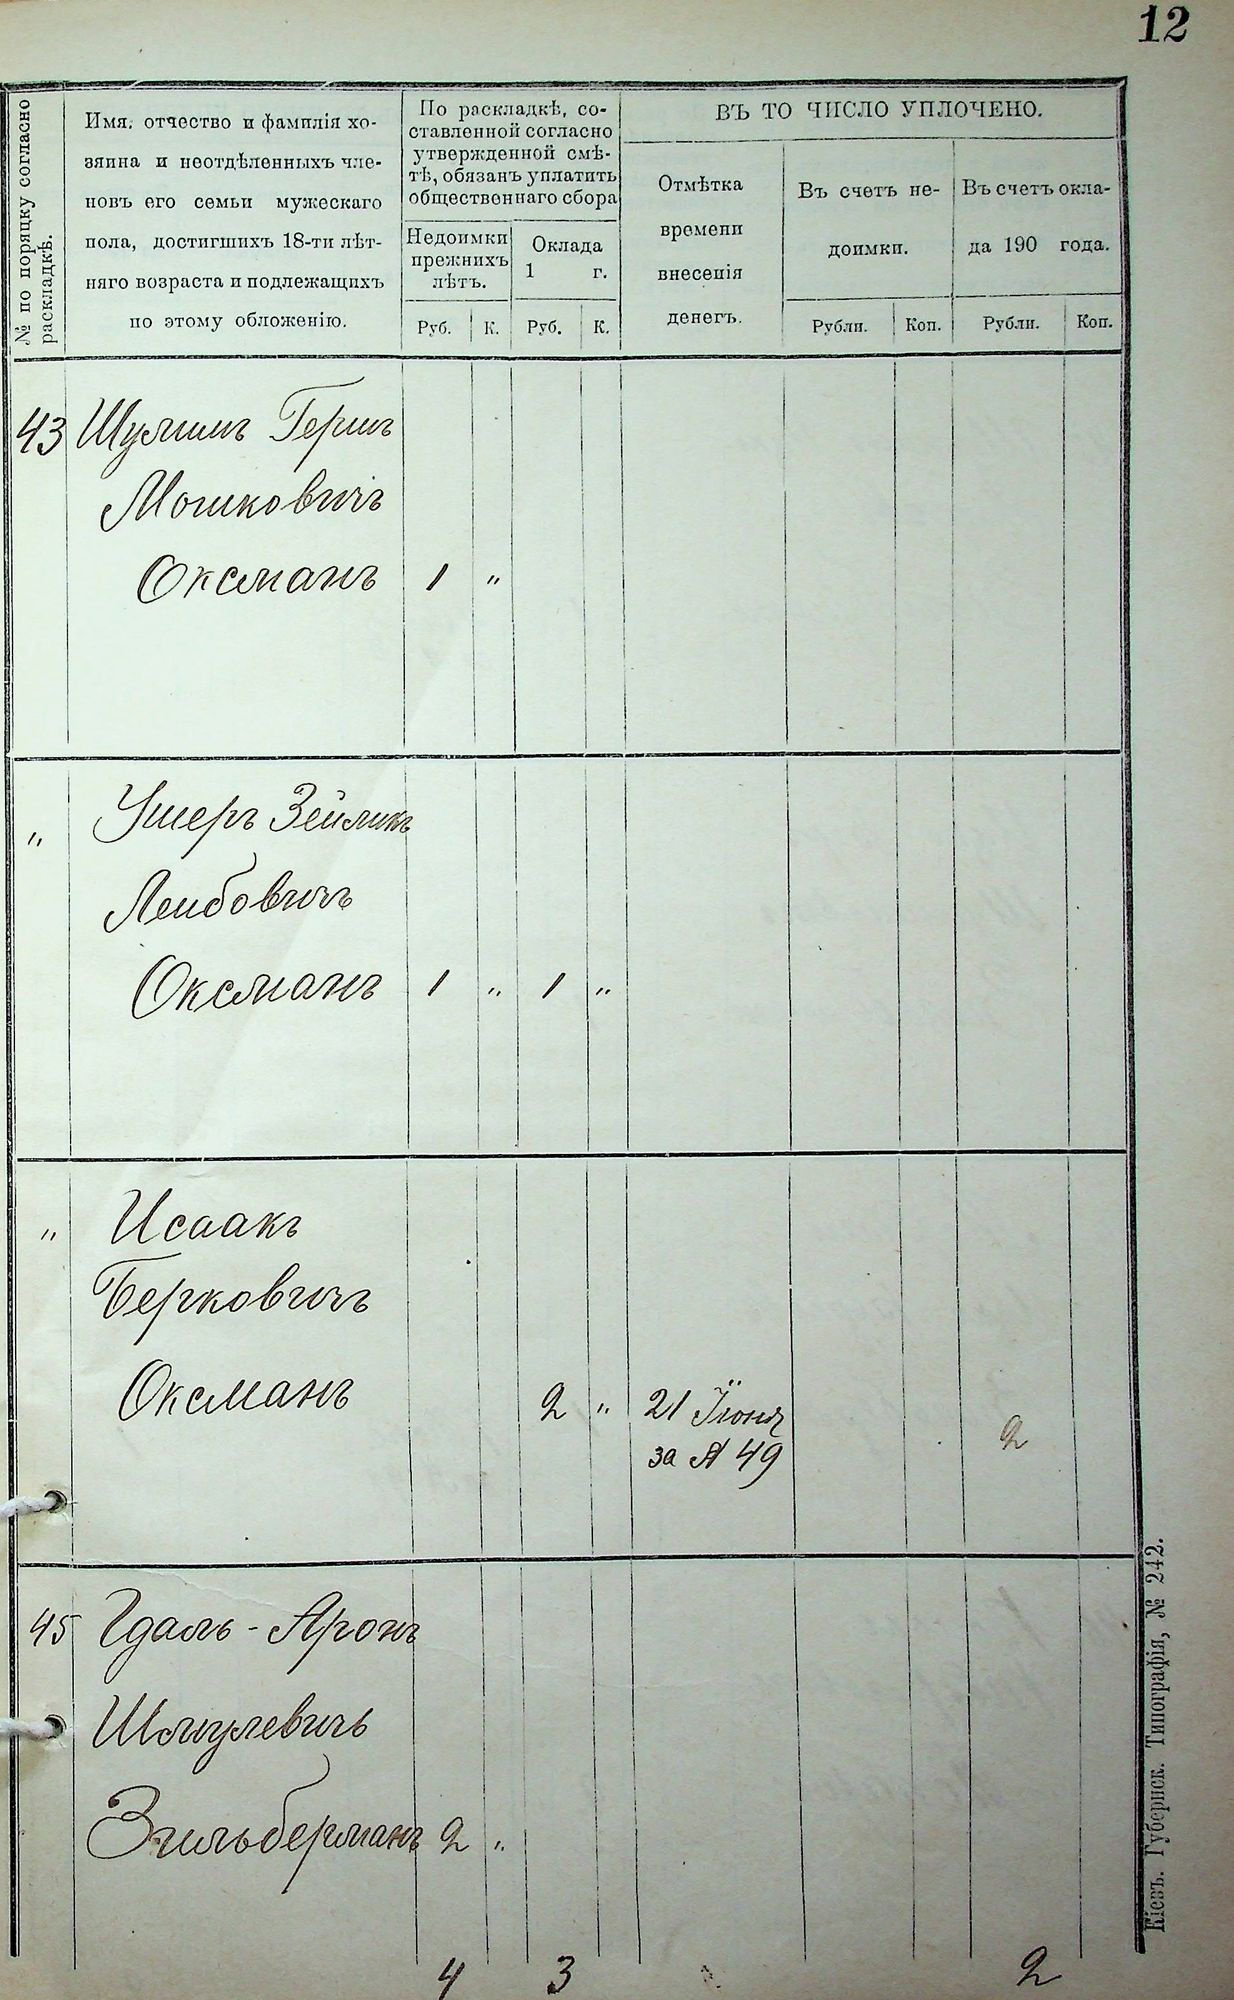 12
№ по порядку согласно
раскладкѣ.
Имя, отчество и фамилія хо-
зяина и неотдѣленныхъ чле-
новъ его семьи мужескаго
пола, достигшихъ 18-ти лѣт-
няго возраста и подлежащихъ
по этому обложенію.
По раскладкѣ, со-
ставленной согласно
утвержденной смѣ-
тѣ, обязанъ уплатить
общественнаго сбора
Недоимки
прежнихъ
лѣтъ.
Оклада
1 г.
Руб. К. Руб. К.
ВЪ ТО ЧИСЛО УПЛОЧЕНО.
Отмѣтка
времени
внесенія
денегъ.
Въ счетъ не-
доимки.
Въ счетъ окла-
да 190 года.
Рубли. Коп. Рубли. Коп.
43 Шулимъ Гершъ
Мошковичъ
Оксманъ 1 "
" Ушеръ Зейликъ
Лейбовичъ
Оксманъ 1 " 1 "
" Исаакъ
Берковичъ
Оксманъ 2 " 21 Іюня 2
за № 49
45 Гдаль-Аронъ
Шмулевичъ
Зильберманъ 2 "
4 3 2
Кіевъ. Губернск. Типографія, № 242.